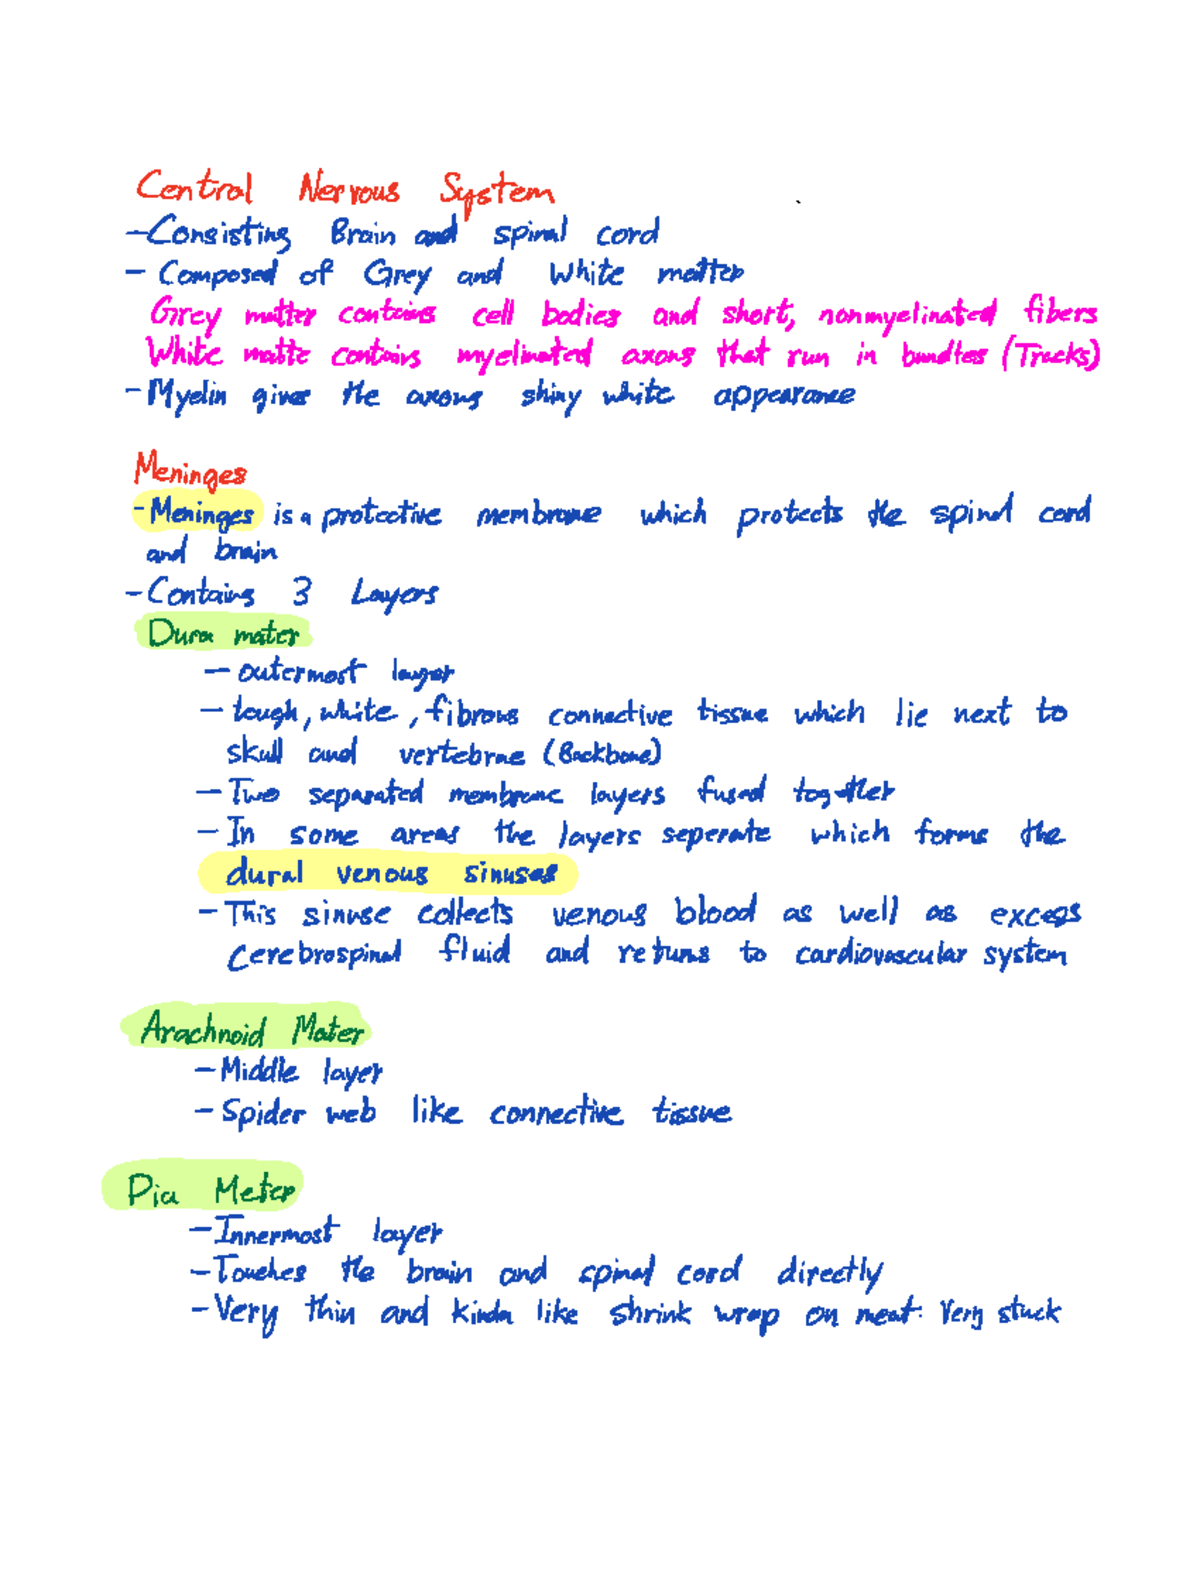 Central Nervous System
-Consisting Brain and spinal cord
- Composed of Grey and White matter
Grey matter contains cell bodies and short, nonmyelinated fibers
White matte contains myelinated axons that run in bundles (Tracks)
-Myelin gives the axons shiny white appearance
Meninges
-Meninges is a protective membrane which protects the spinal cord
and brain
-Contains 3 Layers
Dura mater
- outermost layer
- tough, white, fibrous connective tissue which lie next to
skull and vertebrae (Backbone)
- Two separated membrane layers fused together
- In some areas the layers seperate which forms the
dural venous sinuses
- This sinuse collects venous blood as well as excess
cerebrospinal fluid and returns to cardiovascular system
Arachnoid Mater
- Middle layer
- Spider web like connective tissue
Pia Meter
- Innermost layer
- Touches the brain and spinal cord directly
- Very thin and kinda like shrink wrap on meat. Very stuck